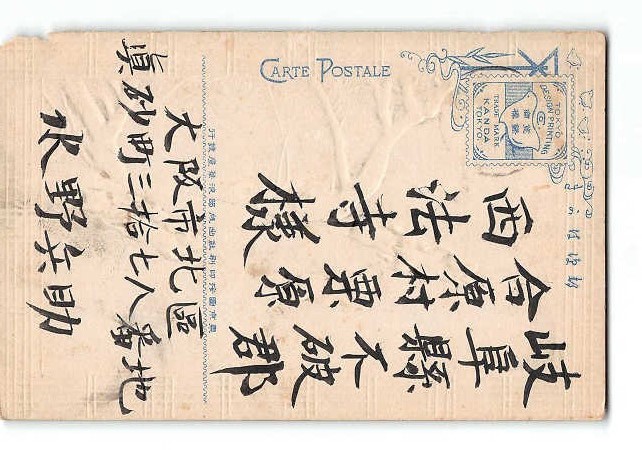 CARTE POSTALE
TOKYO
DESIGN PRINTING
TRADE MARK
KANDA
TOKYO
岐阜縣不破郡
合原村栗原
西法寺様
大阪市北區
真砂町三拾七八番地
水野兵助